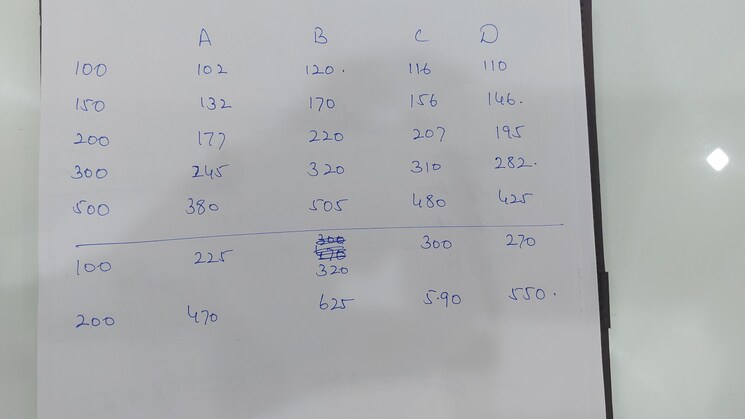 A B C D
100 102 120. 116 110
150 132 170 156 146.
200 177 220 207 195
300 245 320 310 282.
500 380 505 480 425
100 225 320 300 270
200 470 625 5.90 550.